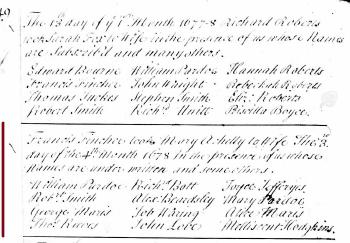 49
The 13 day of ye 1st Month 1677-8 Richard Roberts
took Sarah to Wife in the presence of us whose Names
are Subscribd and many others.
Edward Bourne William Pardoe Hannah Roberts
Francis Fincher John Wright Rebekah Roberts
Thomas Tuckes Stephen Smith Eliz. Roberts
Robert Smith Richd Unitt Priscilla Boyce
Francis Fincher took Mary Ashelly to Wife The
day of the 4th Month 1678 In the presence of us whose
Names are under written and some others.
William Pardoe Richd Bott Joyce Jefferyes
Robt Smith Alex Beardsley Mary Pardoe
George Maris Job Waring Alce Maris
Tho Reeves John Lobe Mellisent Hodgkins